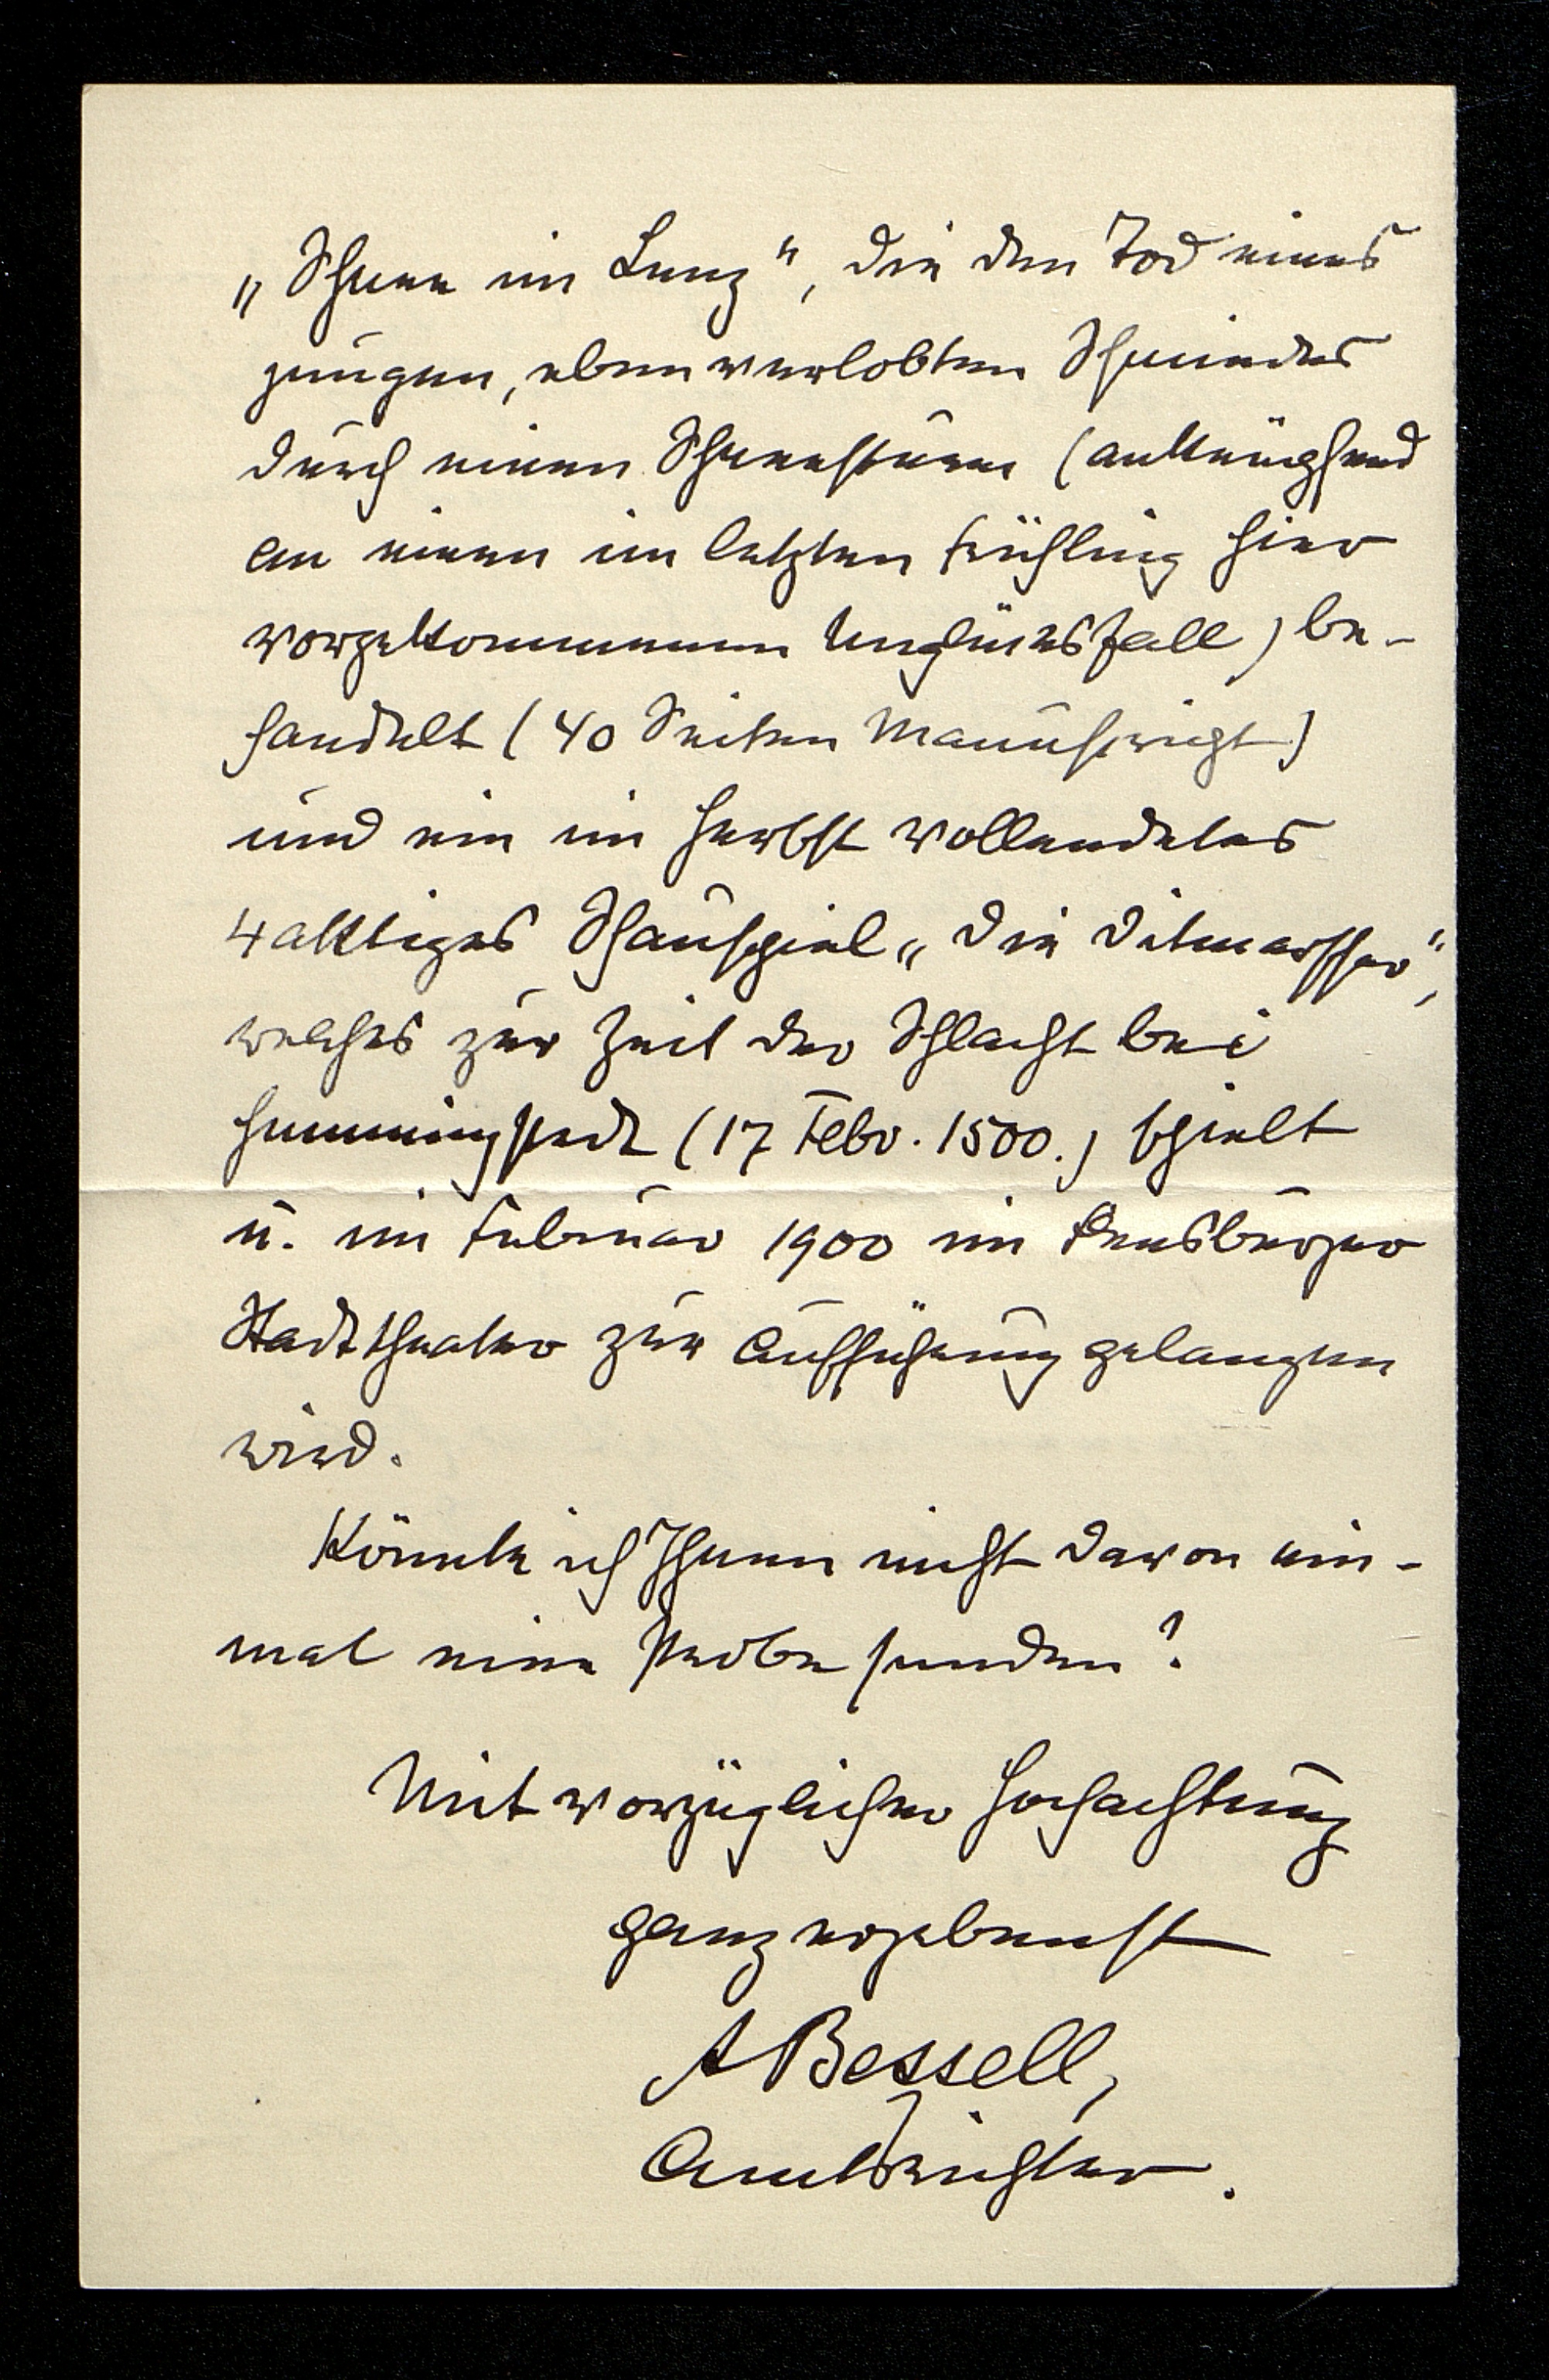 „Schnee im Lenz“, die den Tod eines
jungen, eben verlobten Schmiedes
durch einen Schneesturm (anknüpfend
an einen im letzten Frühling hier
vorgekommenen Unglücksfall) be-
handelt (40 Seiten Manuskript)
und ein im Herbst vollendetes
4aktiges Schauspiel „Die Ditmarscher“,
welches zur Zeit der Schlacht bei
Hemmingstedt (17 Febr. 1500.) spielt
u. im Februar 1900 im Flensburger
Stadttheater zur Aufführung gelangen
wird.
Könnte ich Ihnen nicht davon ein-
mal eine Probe senden?
Mit vorzüglicher Hochachtung
ganz ergebenst
A Bessell,
Amtsrichter.